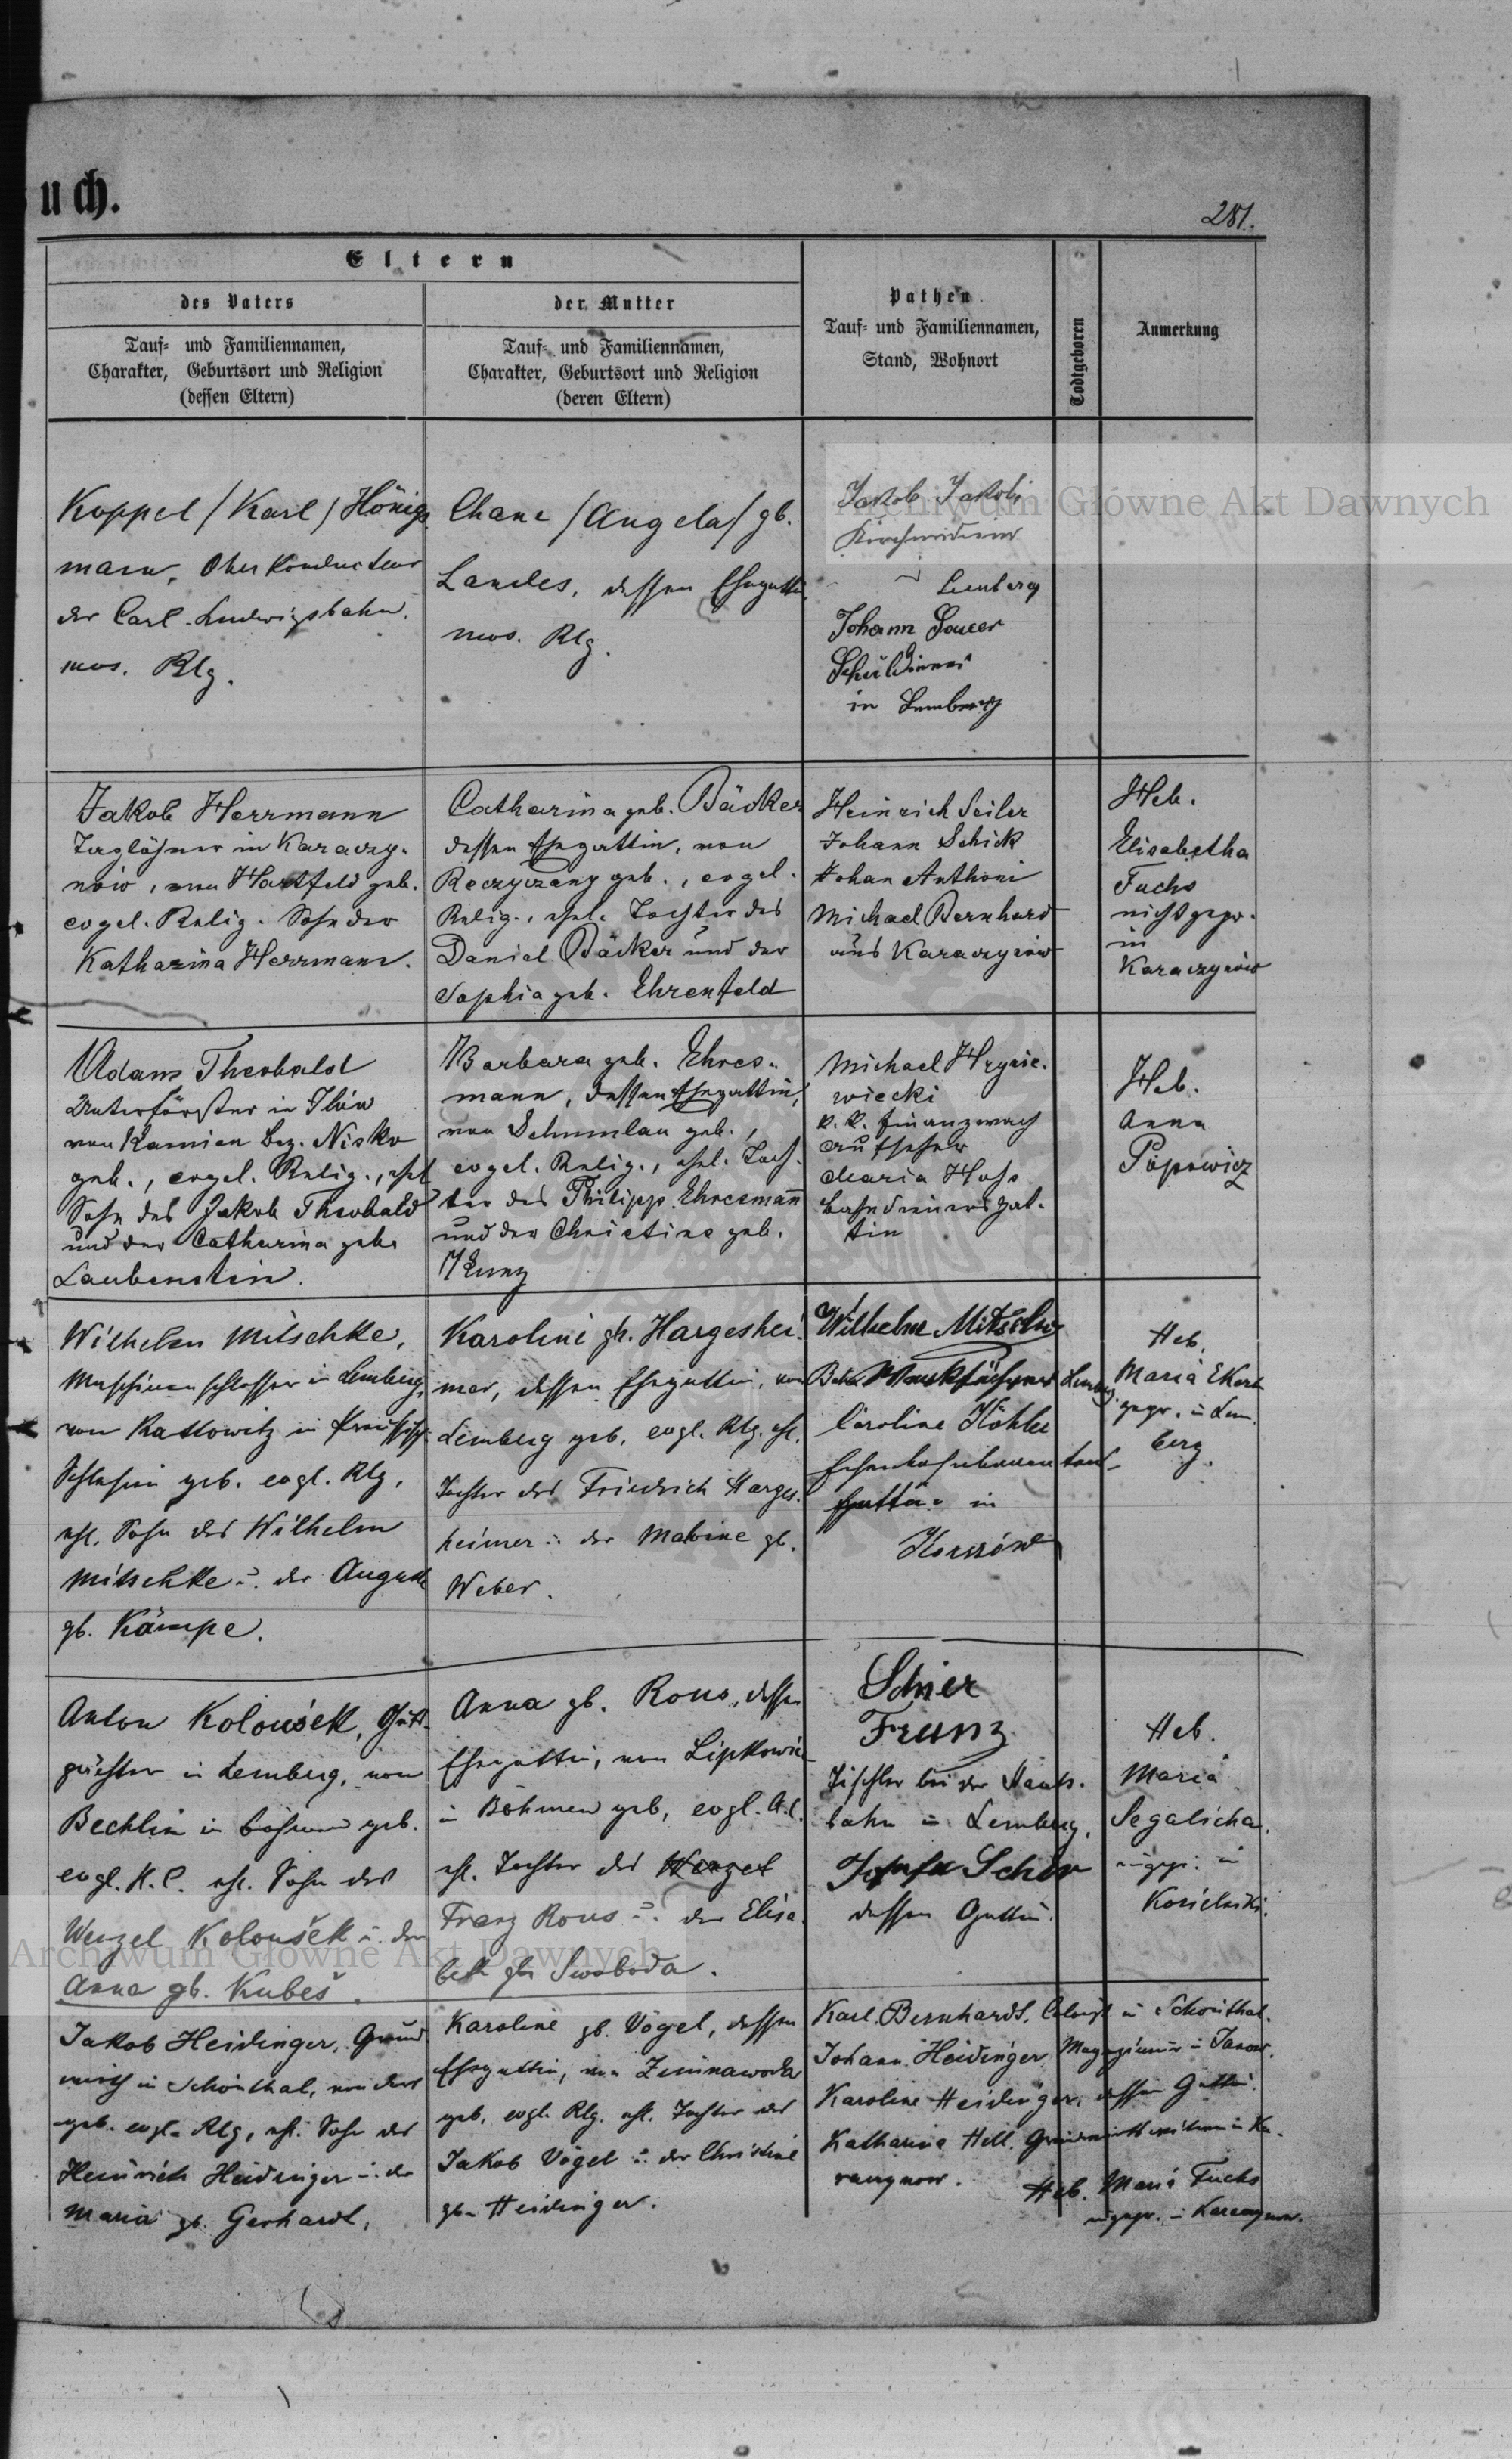 uch.
281.
Eltern
des Vaters
der Mutter
Tauf- und Familiennamen,
Charakter, Geburtsort und Religion
(dessen Eltern)
Tauf- und Familiennamen,
Charakter, Geburtsort und Religion
(deren Eltern)
Pathen
Tauf- und Familiennamen,
Stand, Wohnort
Todtgeboren
Anmerkung
Koppel / Karl / Hönigs
mann, Oberkondukteur
der Carl-Ludwigsbahn.
mos. Rlg.
Chane / Angela / gb.
Landes, dessen Ehegattin,
mos. Rlg.
Jakob Jakobi
Kirchendiener
Lemberg
Johann
in Lemberg
Archiwum Główne Akt Dawnych
Jakob Herrmann
Taglöhner in Karaczy-
nów, von Hartfeld geb.
evgel. Relig. Sohn der
Katharina Herrmann.
Catharina geb. Bäcker
dessen Ehegattin, von
Reczyczany geb., evgel.
Relig., ehel. Tochter des
Daniel Bäcker und der
Sophia geb. Ehrenfeld
Heinrich Seiler
Johann Schick
Johan Anthoni
Michael Bernhard
aus Karaczynów
Heb.
Elisabetha
Fuchs
nicht gepr.
in
Karaczynów
Adam Theobald
Unterförster in
von Kamien Bez. Nisko
geb., evgel. Relig., ehel
Sohn des Jakob Theobald
und der Catharina geb.
Laubenstein.
Barbara geb. Ehres-
mann, dessen Ehegattin,
von Schumlau geb.,
evgel. Relig., ehel. Toch-
ter des Philipp Ehresmann
und der Christine geb.
Kunz
Michael Hrynie-
wiecki
k. k. Finanzwach
aufseher
Maria
Bahndieners gat-
tin
Heb.
Anna
Popowicz
Wilhelm Mitschke,
Maschinenschlosser in Lemberg,
von Kattowitz in Preußisch
Schlesien geb. evgl. Rlg,
ehl. Sohn des Wilhelm
Mitschke u. der Auguste
gb. Kämpe.
Karoline gb. Hargeshei-
mer, dessen Ehegattin, von
Lemberg geb. evgl. Rlg. ehl.
Tochter des Friedrich Harges-
heimer u. der Malvine gb.
Weber.
Wilhelm Mitschke
Bahn Werkführer Lemberg
Caroline Köhler
Eisenbahnbeamten
Gattin in
Heb.
Maria
gepr. in Lem-
berg.
Anton Koloušek, Guts-
pächter in Lemberg, von
Bechlin in Böhmen geb.
evgl. H.C. ehl. Sohn des
Wenzel Koloušek u. der
Anna gb. Kubeš.
Anna gb. Rous, dessen
Ehegattin, von
in Böhmen geb, evgl.
ehl. Tochter des Wenzel
Franz Rous u. der Elisa-
beth gb. Swoboda.
Schier
Franz
Tischler bei der Staats-
bahn in Lemberg,
Josefa Schier
dessen Gattin.
Heb.
Maria
Segalicha
ungepr. in
Archiwum Główne Akt Dawnych
Jakob Heidinger, Grund
wirth in Schönthal, von dort
geb. evgl. Rlg, ehl. Sohn des
Heinrich Heidinger u. der
Maria gb. Gerhardt,
Karoline gb. Vogel, dessen
Ehegattin, von Zimnawoda
geb. evgl. Rlg. ehl. Tochter des
Jakob Vogel u. der Christine
gb. Heidinger.
Karl Bernhardt, Colonist in Schönthal.
Johann Heidinger in Janow.
Karoline Heidinger, dessen Gattin.
Katharina Hell, Grundwirthin in Ka-
raczynow.
Heb. Maria Fuchs
ungepr. in Karaczynow.